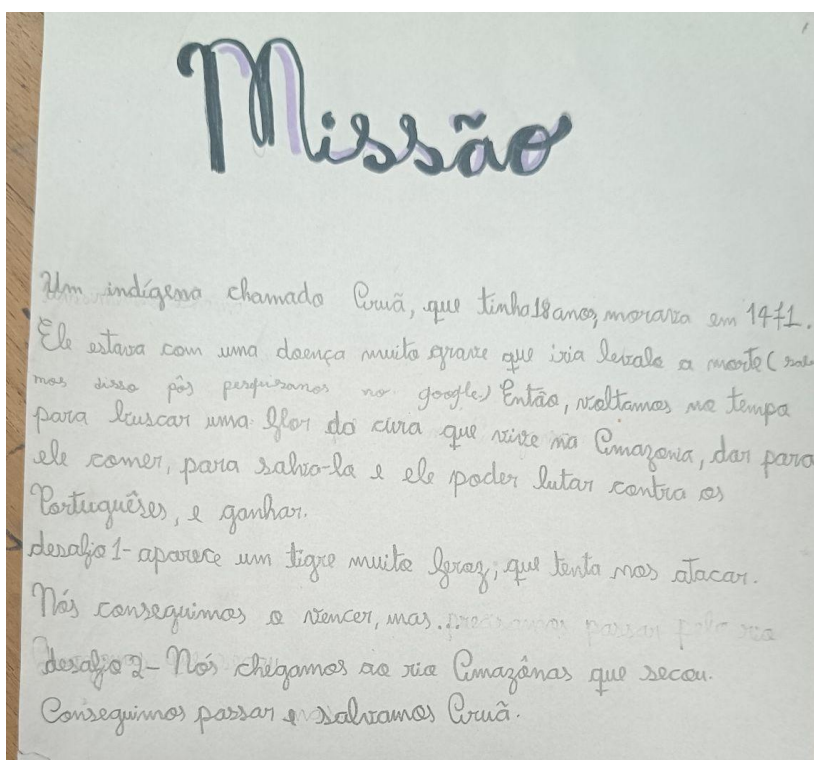 Missão
Um indígena chamado Aruã, que tinha 18 anos, morava em 1471.
Ele estava com uma doença muito grave que iria levalo a morte (sabe
mos disso pôs pesquisamos no google) Então, voltamos no tempo
para buscar uma flor da cura que vive na Amazonia, dar para
ele comer, para salva-lo e ele poder lutar contra os
Portuguêses, e ganhar.
desafio 1- aparece um tigre muito feroz, que tenta nos atacar.
Nós conseguimos o vencer, mas... precisamos passar pelo rio
desafio 2- Nós chegamos ao rio Amazônas que secou.
Conseguimos passar e salvamos Aruã.